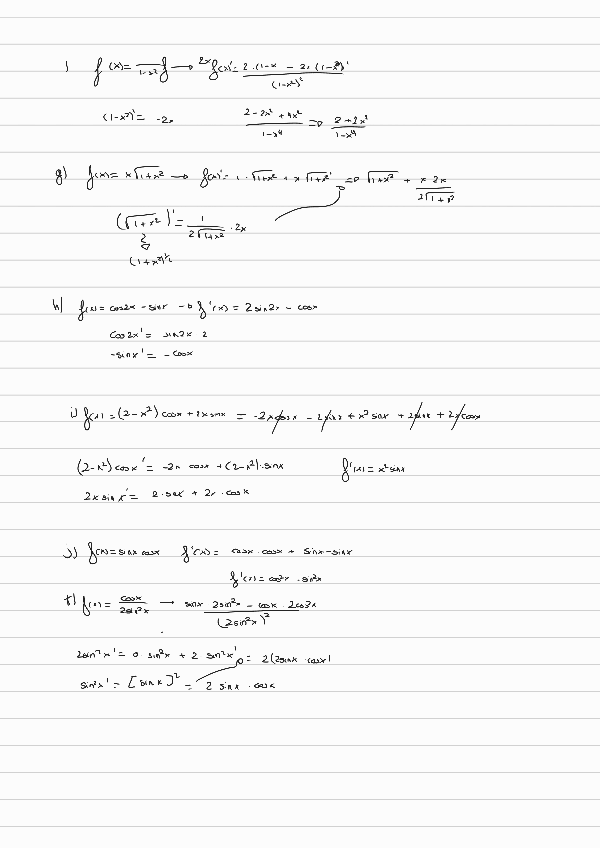 ) f(x) = 2x/(1-x² → f(x)' = 2·(1-x - 2x(1-x²)' / (1-x²)²
(1-x²)' = -2x (2-2x²+4x²)/(1-x⁴) ⇒ (2+2x²)/(1-x⁴)
g) f(x) = x√(1+x²) → f(x)' = 1·√(1+x²) + x√(1+x²)' ⇒ √(1+x²) + (x 2x)/(2√(1+x²
(√(1+x²))' = 1/(2√(1+x²)) · 2x
(1+x²)½
h) f(x) = cos2x - sinx → f'(x) = 2sin2x - cosx
cos2x' = sin2x 2
-sinx' = -cosx
i) f(x) = (2-x²) cosx + 2x sinx = -2x cosx - 2sinx + x² sinx + 2sinx + 2x cosx
(2-x²) cosx' = -2x cosx + (2-x²)·sinx f'(x) = x² sinx
2x sinx' = 2·sinx + 2x·cosx
j) f(x) = sinx cosx f'(x) = cosx·cosx + sinx-sinx
f'(x) = cos²x · sin²x
f(x) = cosx/(2sin²x) → (sinx 2sin²x - cosx · 2cos²x)/(2sin²x)²
2sin²x' = 0 sin²x + 2 sin²x' = 2(2sinx cosx)
sin²x' = [sinx]² = 2 sinx · cosx